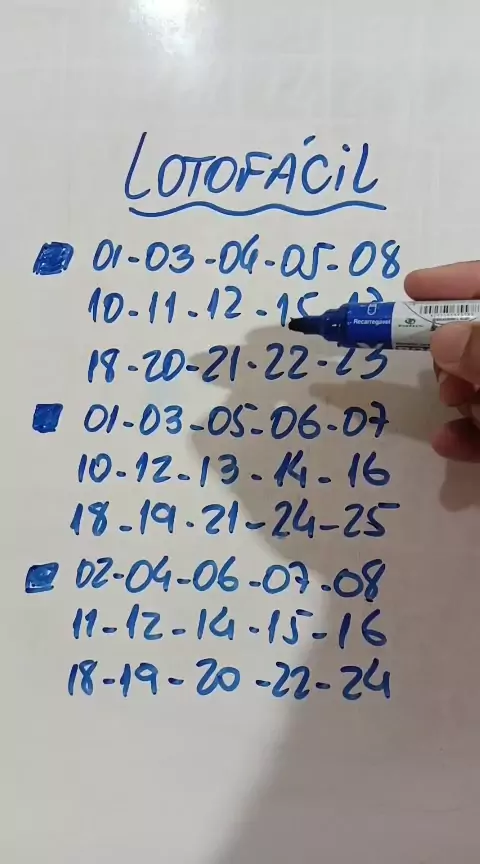 LOTOFÁCIL
01-03-04-05-08
10-11-12-15-17
18-20-21-22-23
01-03-05-06-07
10-12-13-14-16
18-19-21-24-25
02-04-06-07-08
11-12-14-15-16
18-19-20-22-24
Recarregável